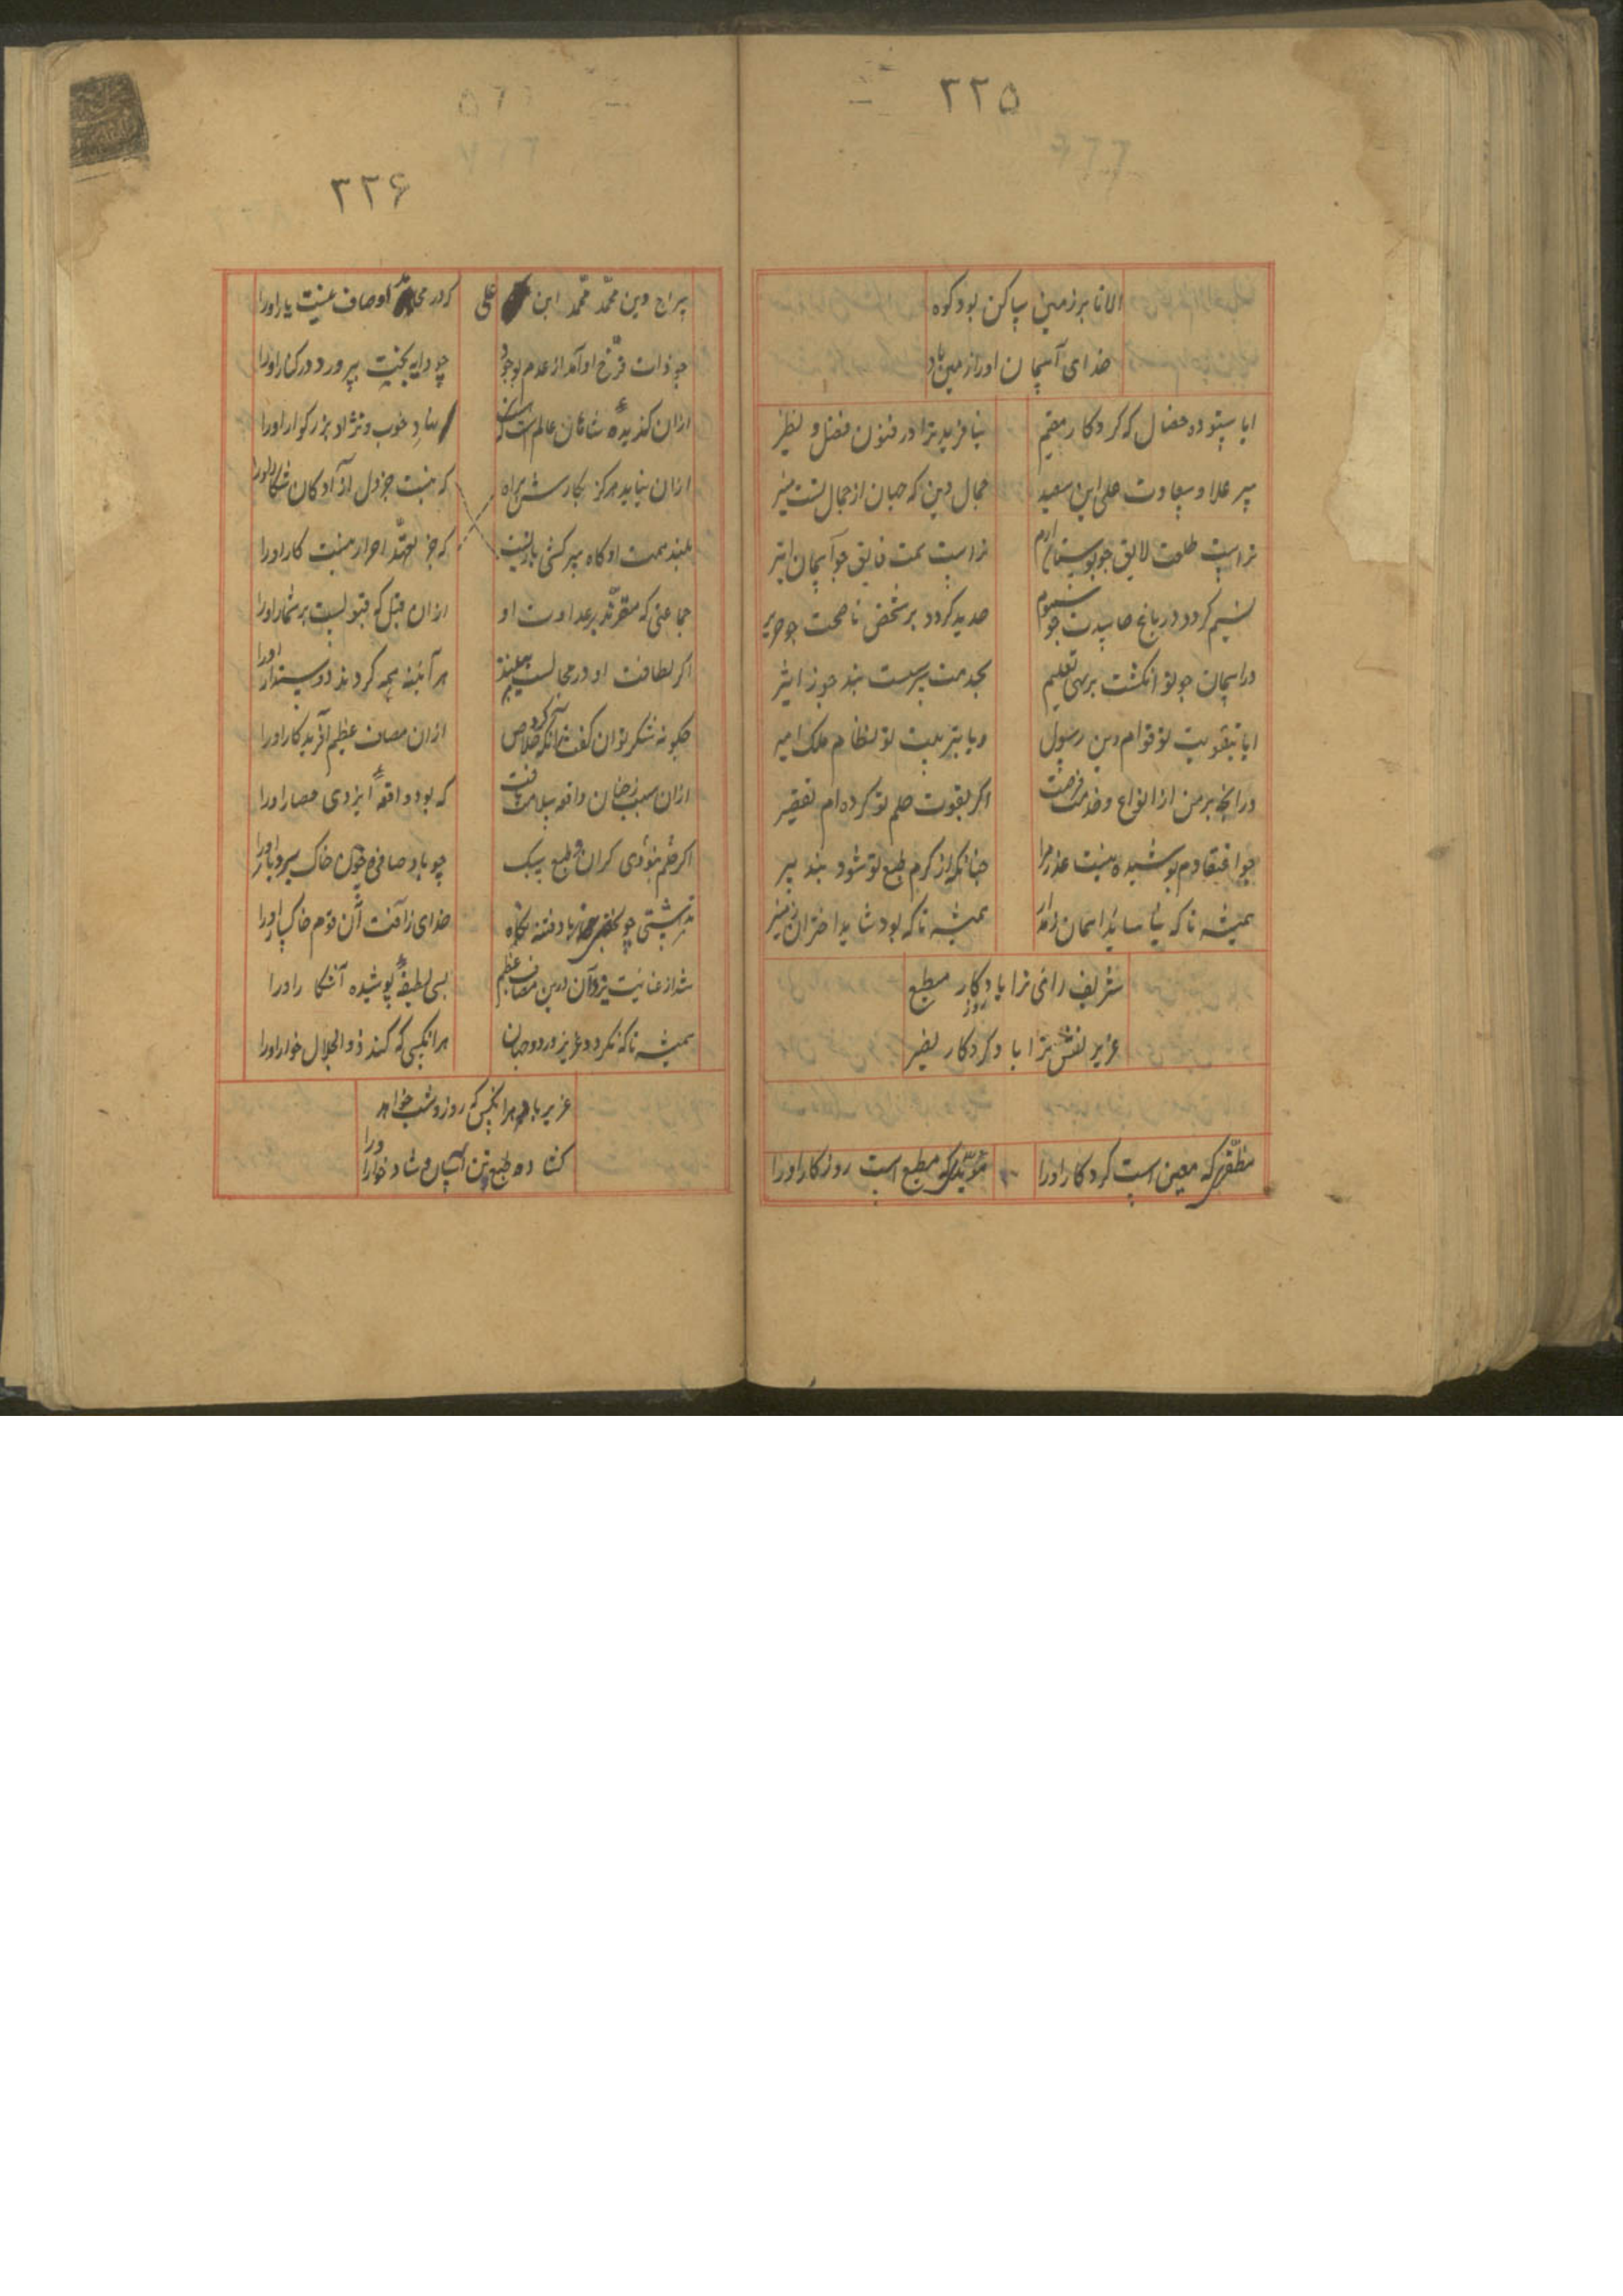 ۲۲۵
الا تا بر زمین ساکن بود کوه
خدای آسمان او را زمین باد
ایا ستوده خصال که کردکار مقیم نیافرید ترا در فنون فضل و نظیر
سپر علا و سعادت علی ابن سعید جمال دین که جهان از جمال تست منیر
تراست طلعت لایق چو بوستان ارم تراست همت فایق چو آسمان اثیر
نسیم کردد در باغ حاسدت چو سموم حدید کردد بر شخص ناصحت چو حریر
در اسمان چو تو انکشت برنهی تعلیم بخدمت ببندد چو ز اثیر
ایا بتقویت تو قوام دین رسول ویا بتربیت تو نظام ملک امیر
در انچه بر من از انواع خدمت فرضست اکر بقوت حلم تو کرده ام تقصیر
چو اعتقادم پوشیده نیست عذر مرا چنانکه از کرم طبع تو شود بپذیر
همیشه تا که نیاساید اسمان ز مدار همیشه تا که بود شاید اختران منیر
شریف رای ترا باد کار مطیع
روز
عزیز نفس ترا باد کردکار نصیر
مظفری که معین است کردکار او را مؤیدی که مطیع است روزکار او را
۲۲۶
سراج دین محمد محمد ابن علی که در محامد اوصاف نیست یار او را
چو ذات فرخ او آمد از عدم بوجود چو دایه بخت بپرورد در کنار او را
ازان کزیدهٔ شاهان عالم است که هست نهاد خوب و نژاد بزرکوار او را
ازان نیاید هرکز بکار سش براه که نیست جز دل ازادکان شکار او را
بلند همت او کاه سرکشی بار نیست که جز تعهد احرار نیست کار او را
جماعتی که مقرند بر عداوت او ازان قبل که قبولیست بر شمار او را
اکر لطافت او در مجالست بینند هر آینه همه کردند دوستدار او را
چکونه شکر توان کفت آنکه کرد خلاص ازان مصاف عظیم آفریدکار او را
ازان سبب ز چنان واقعه سلامت یافت که بود واقعهٔ ایزدی حصار او را
اکر نبودی کران و طبع سبک چو باد صافی و چون خاک بردبار او را
خدای ز آفت آن قوم خاکسار او را
شد از عنایت یزدان درین مصاف عظیم بسی لطیفهٔ پوشیده آشکار او را
همیشه تا که نکردد عزیز در دو جهان هر انکسی که کند ذو الجلال خوار او را
عزیز باد هر انکس که روز و شب خواهد
کشاده طبع و تن آسان و شادخوار او را